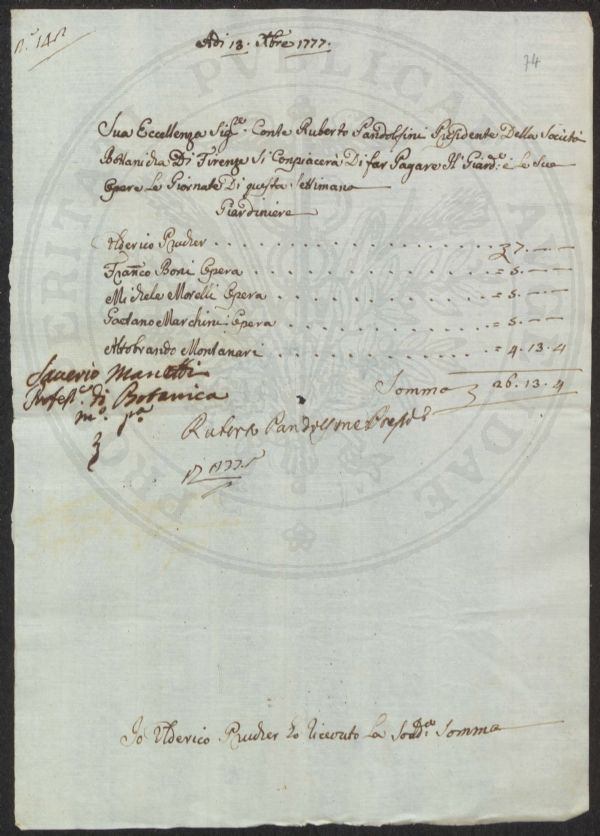 N.° 142
Adi 13. Xbre 1777.
74
Sua Eccellenza Sig.re Conte Ruberto Pandolfini Presidente Della Società
Bottanicha Di Firenze Si Conpiacerà Di far Pagare Il Giard.e e Le Sue
Opere Le Giornate Di questa Settimana
Giardiniere
Ulderico Prucher . . . . . . . . . . 7. — —
Franco Boni Opera . . . . . . . . = 5. — —
Michele Morelli Opera . . . . . . . = 5. — —
Gaetano Marchini Opera . . . . . . = 5. — —
Altobrando Montanari . . . . . . . = 4. 13. 4
Somma 26. 13. 4
Saverio Manetti
Profess.e di Botanica
m.° p.a
Ruberto Pandolfini Presid.e
Io Ulderico Prucher ho ricevuto La Sodd.a Somma
PRO BENE MERITAE PUBLICA